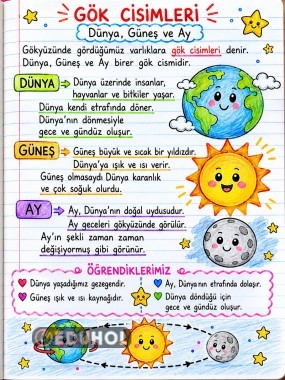 GÖK CİSİMLERİ
Dünya, Güneş ve Ay
Gökyüzünde gördüğümüz varlıklara gök cisimleri denir.
Dünya, Güneş ve Ay birer gök cismidir.
DÜNYA
Dünya üzerinde insanlar,
hayvanlar ve bitkiler yaşar.
Dünya kendi etrafında döner.
Dünya'nın dönmesiyle
gece ve gündüz oluşur.
GÜNEŞ
Güneş büyük ve sıcak bir yıldızdır.
Dünya'ya ışık ve ısı verir.
Güneş olmasaydı Dünya karanlık
ve çok soğuk olurdu.
AY
Ay, Dünya'nın doğal uydusudur.
Ay geceleri gökyüzünde görülür.
Ay'ın şekli zaman zaman
değişiyormuş gibi görünür.
ÖĞRENDİKLERİMİZ
Dünya yaşadığımız gezegendir.
Güneş ışık ve ısı kaynağıdır.
Ay, Dünya'nın etrafında dolaşır.
Dünya döndüğü için
gece ve gündüz oluşur.
EDUHOL